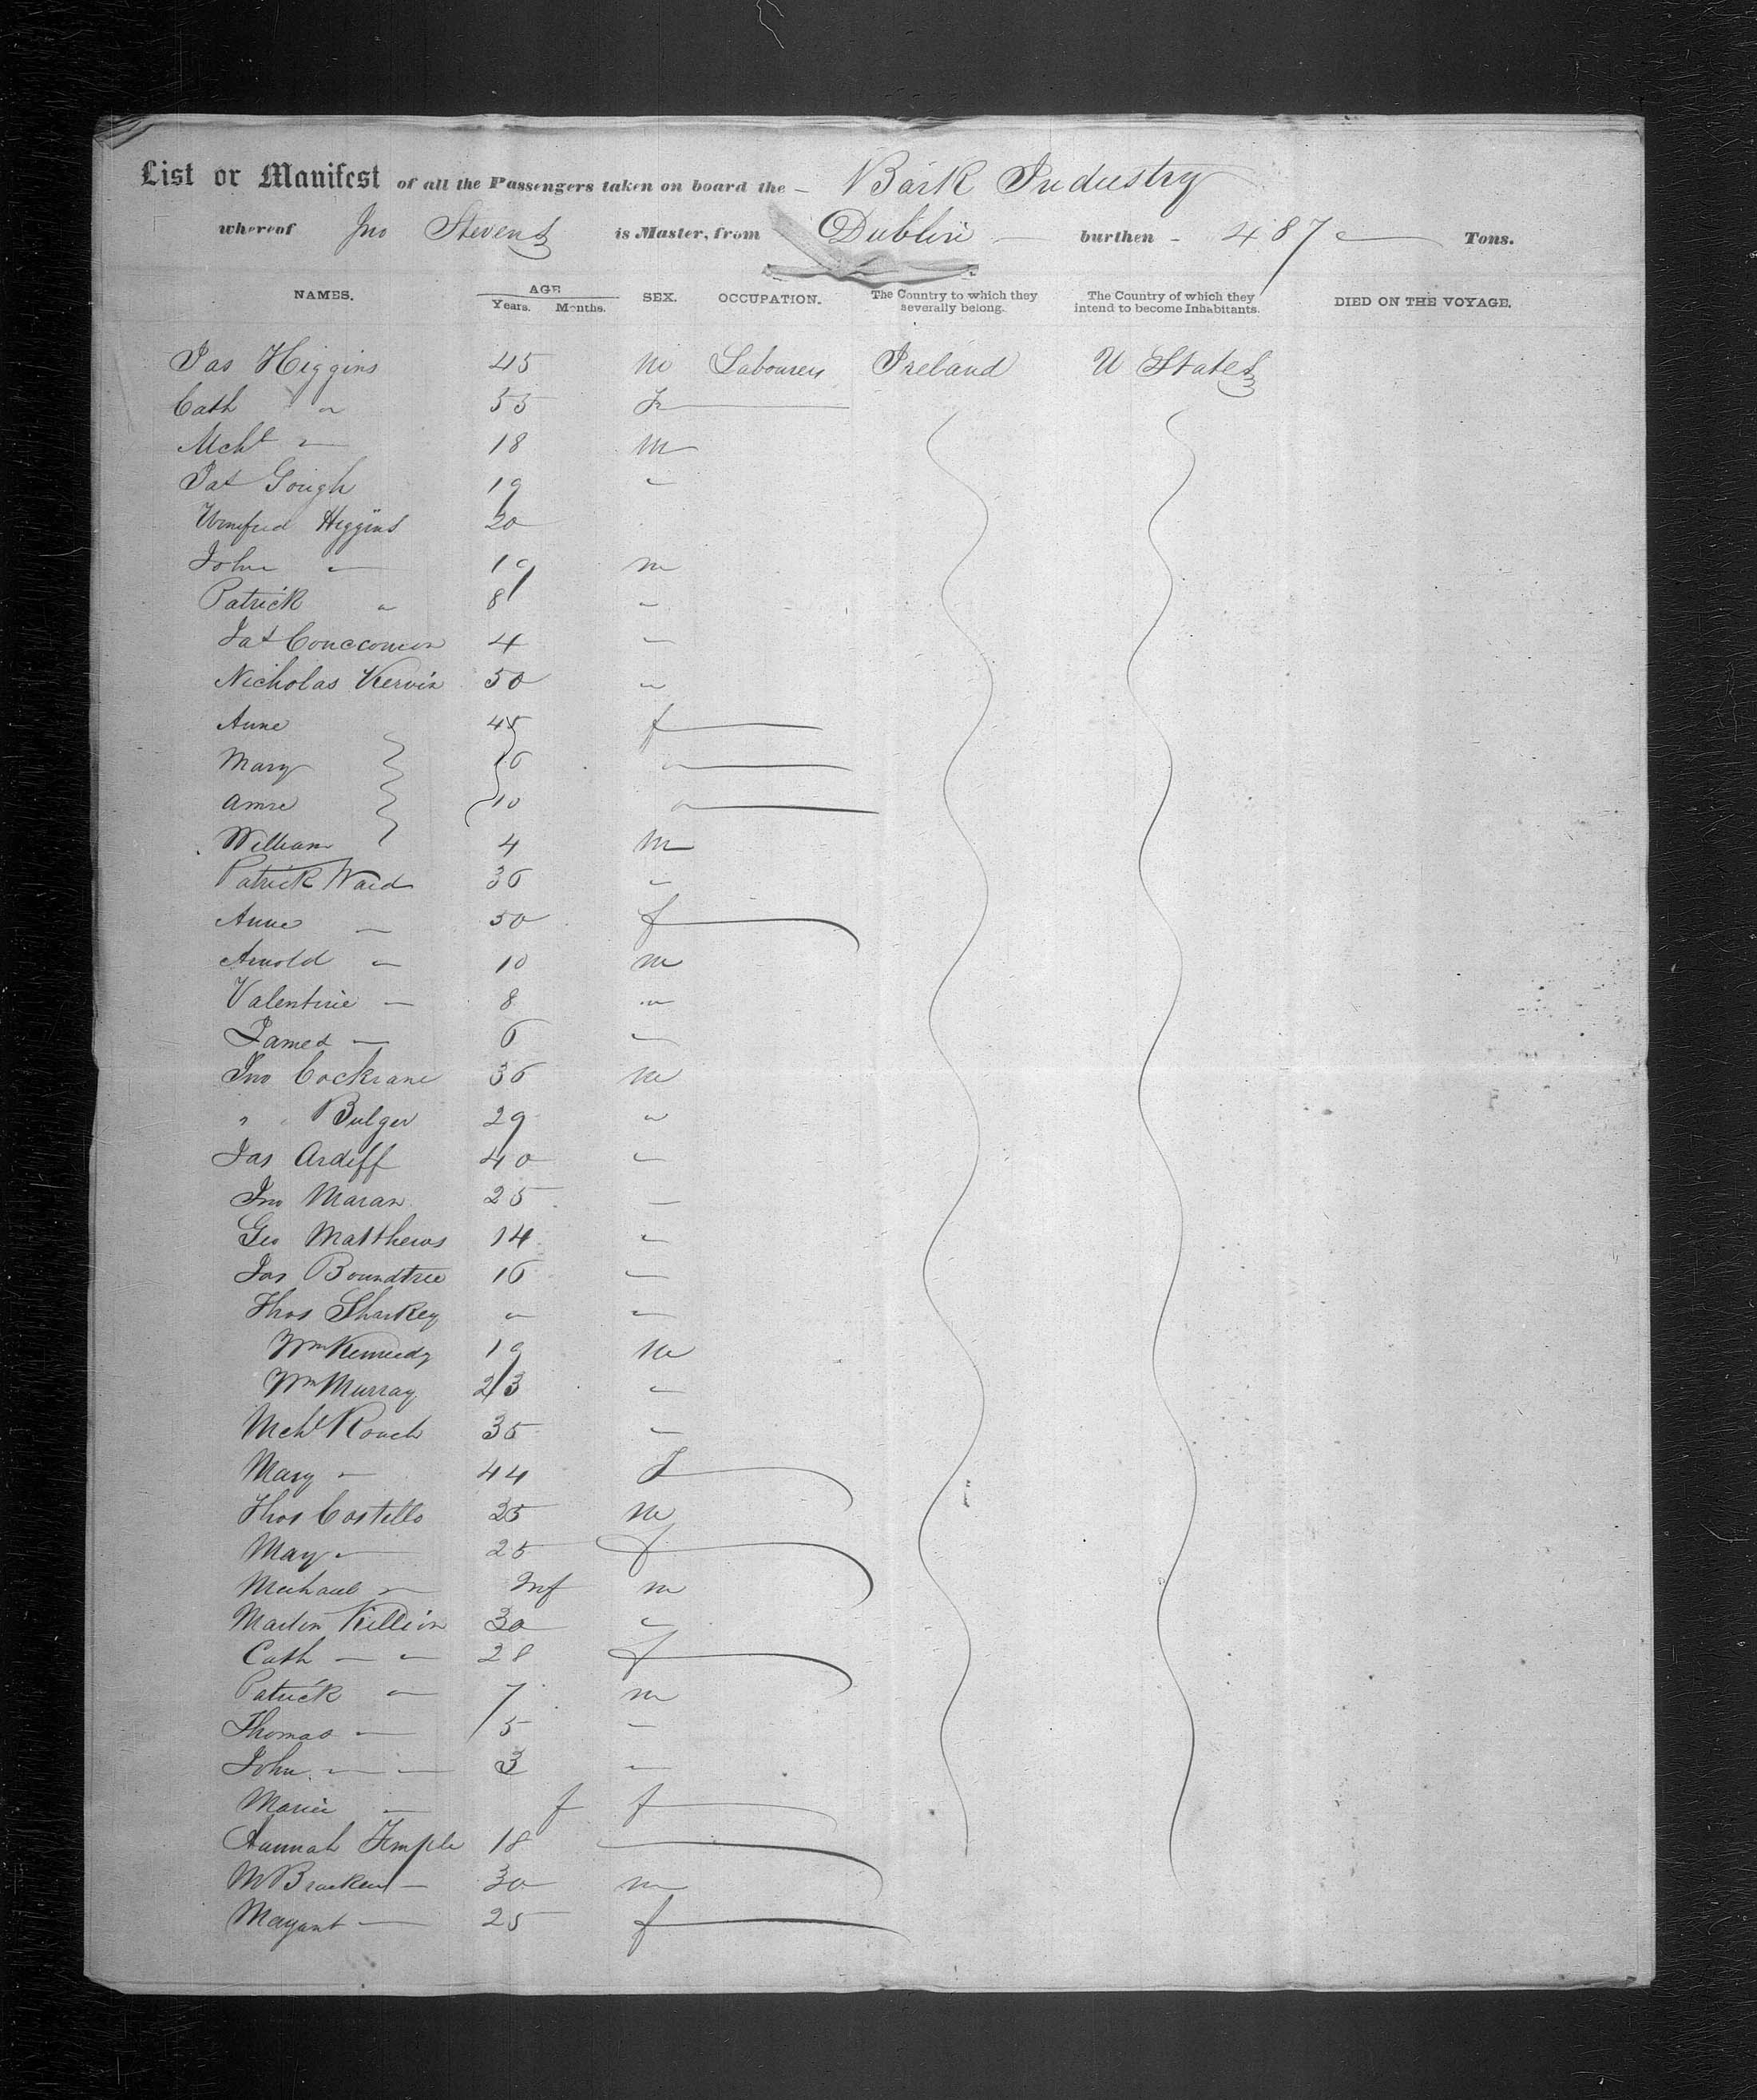 List or Manifest of all the Passengers taken on board the - Bark Industry
whereof Jno Stevens is Master, from Dublin burthen - 487 Tons.
NAMES. AGE Years. Months. SEX. OCCUPATION. The Country to which they severally belong. The Country of which they intend to become Inhabitants. DIED ON THE VOYAGE.
Jas Higgins 45 m Labourer Ireland U States
Cath " 55 F
Mchl " 18 m
Pat Gough 19 "
Winefred Higgins 20
John " 19 m
Patrick " 8 "
Pat 4 "
Nicholas Kervin 50 "
Anne 45 f
Mary 16 "
Anne 10 "
William 4 m
Patrick Ward 36 "
Anne " 50 f
Arnold " 10 m
Valentine " 8 "
James " 6 "
Jno Cockrane 36 m
" Bulger 29 "
Jas Ardiff 40 "
Jno Maran 25 "
Geo Matthews 14 "
Jas Boundtree 16 "
Thos Sharkey " "
Wm Kennedy 19 m
Wm Murray 23 "
Mchl Roach 35 "
Mary " 44 F
Thos Costello 25 m
May " 25 f
Michael " Inf m
Martin Killion 30 "
Cath " 28 f
Patrick " 7 m
Thomas " 5 "
John " 3 "
Maria " f f
Hannah Temple 18
M Bracken 30 m
25 f